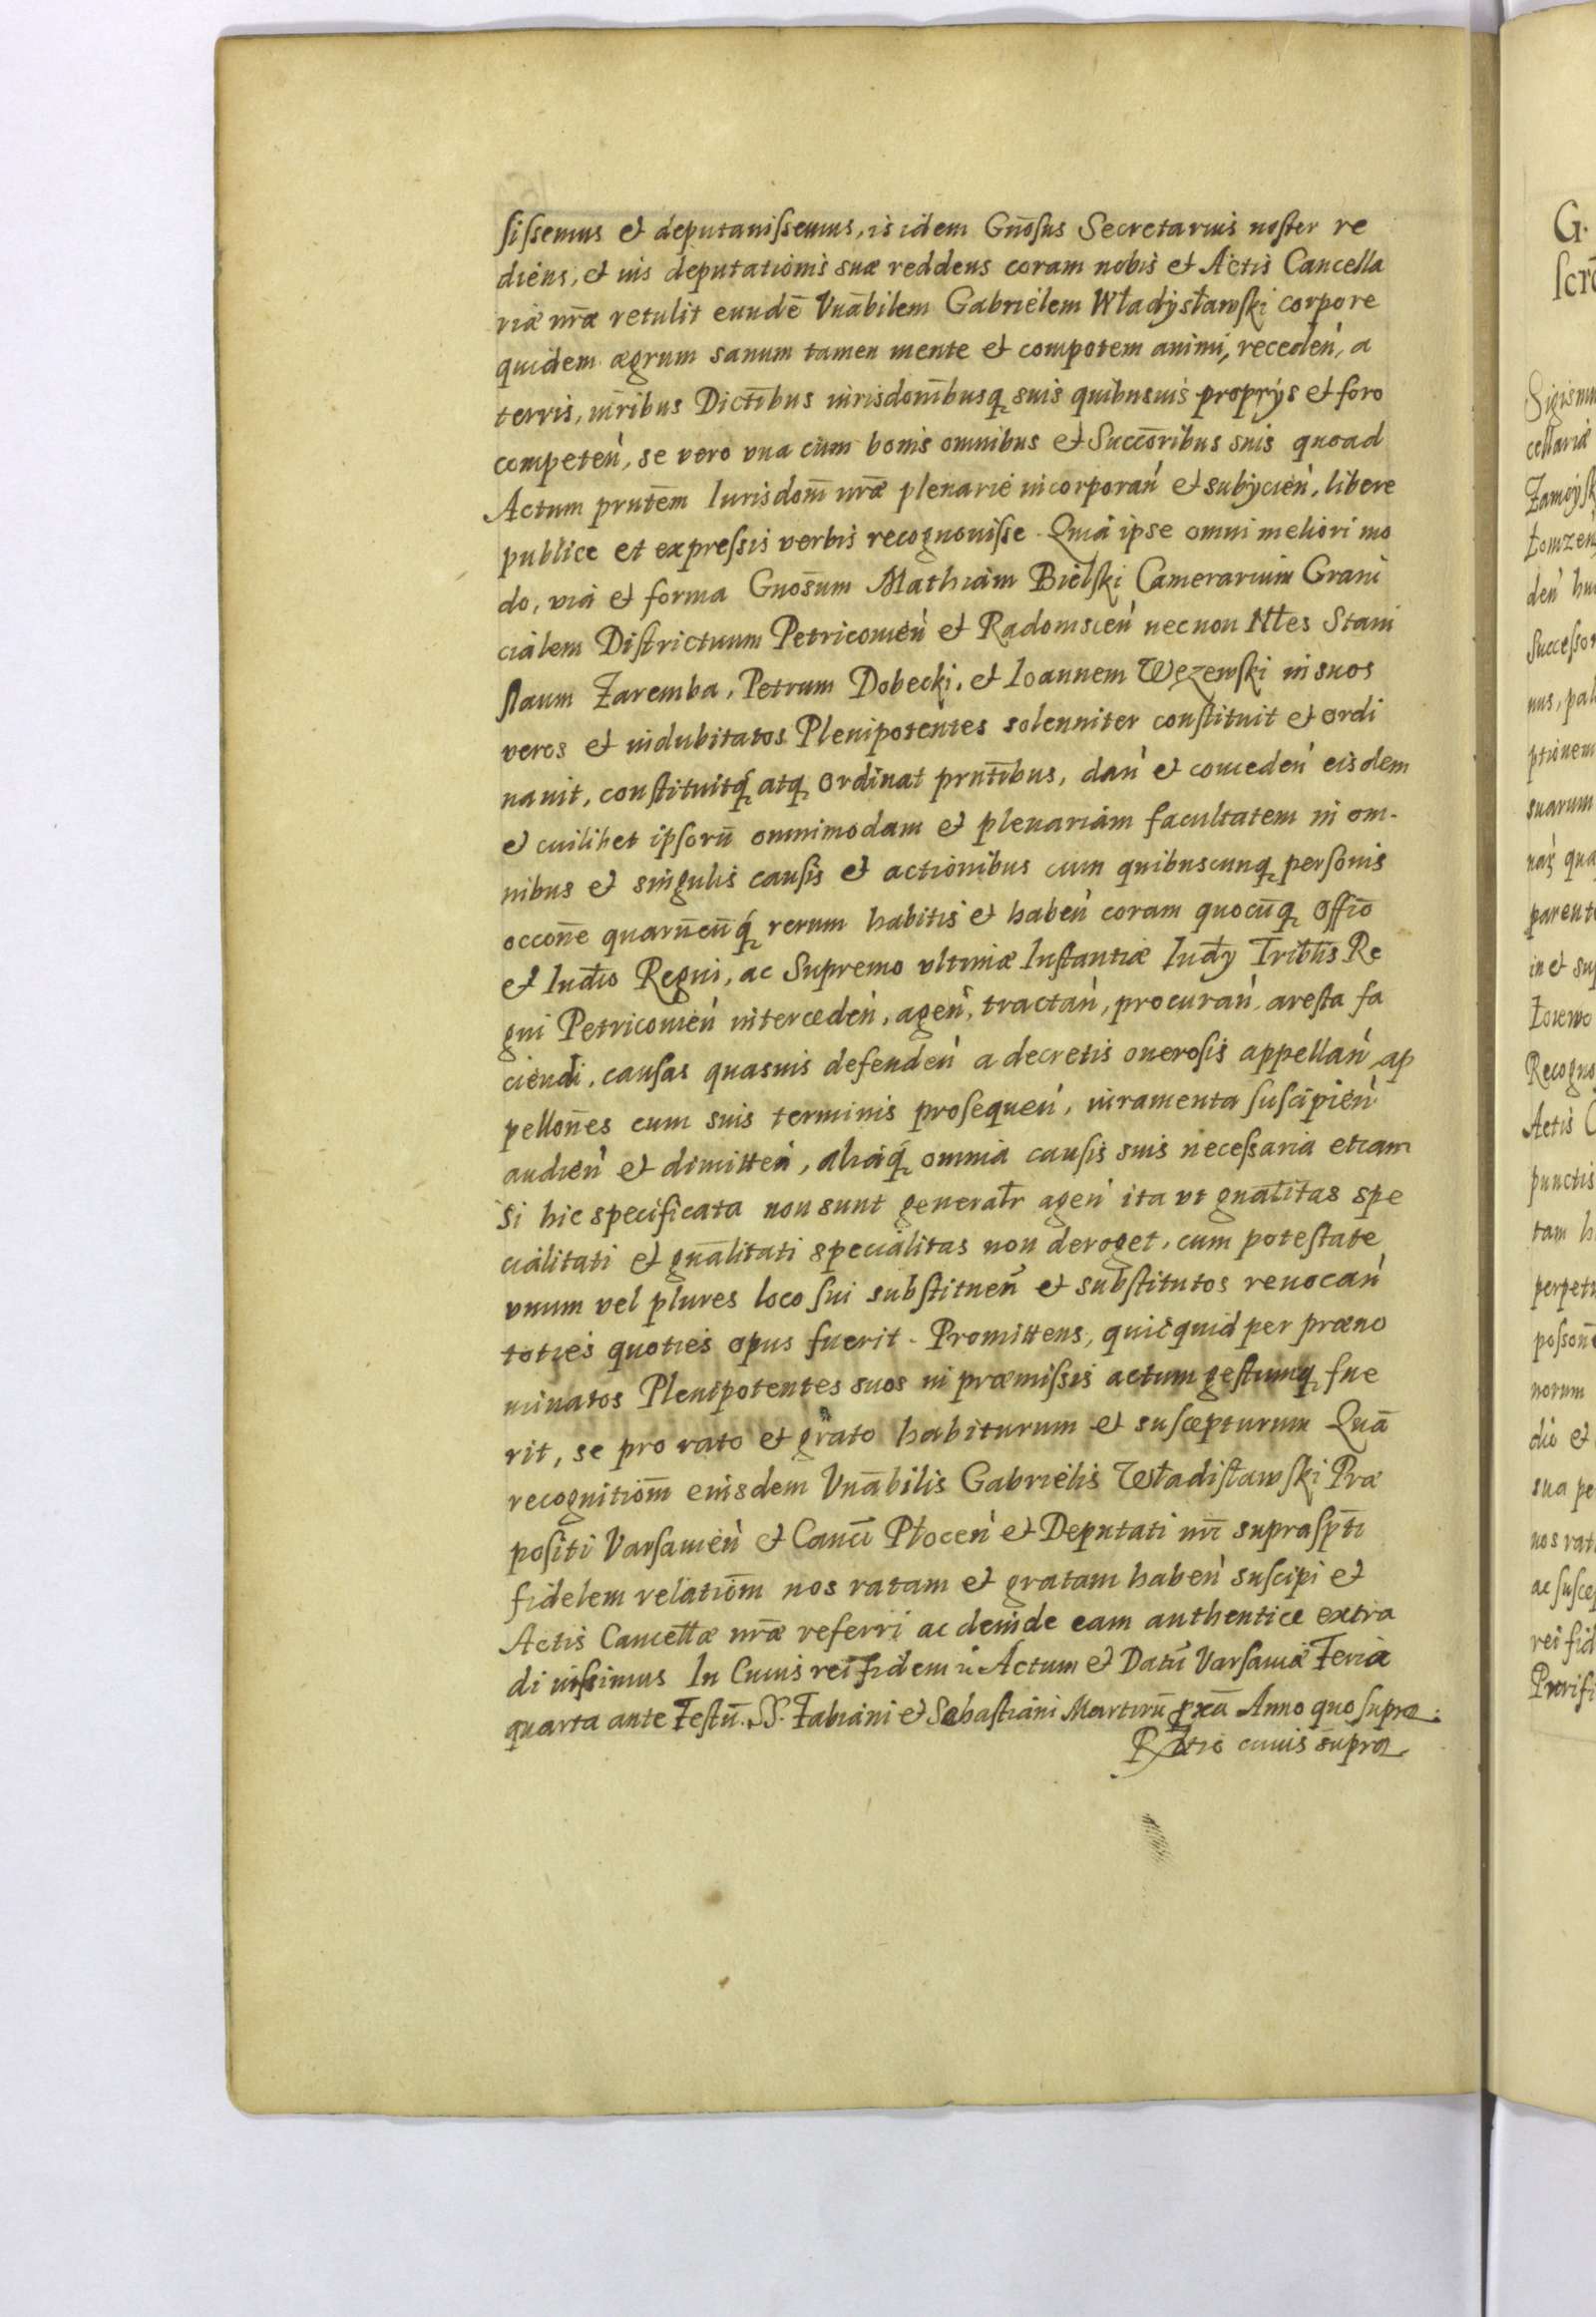 sissemus et deputauissemus, is idem Gnõsus Secretarius noster re
diens, et uis deputationis suæ reddens coram nobis et Actis Cancella
riæ nr̃æ retulit eundẽ Vnãbilem Gabrielem Władysławski corpore
quidem ægrum sanum tamen mente et compotem animi, receden̕, a
terris, iuribus Dictĩbus iurisdonĩbusq suis quibusuis proprÿs et foro
competen̕, se vero vna cum bonis omnibus et Succõribus suis quoad
Actum prntẽm Iurisdom̃ nr̃æ plenarie incorporan̕ et subÿcien̕, libere
publice et expressis verbis recognouisse. Quia ipse omni meliori mo
do, via et forma Gnosũm Mathiam Bielski Camerarium Grani
cialem Districtuum Petricouien̕ et Radomscien̕ necnon Nłes Stani
slaum Zaremba, Petrum Dobecki, et Ioannem Wężewski in suos
veros et indubitatos Plenipotentes solenniter constituit et ordi
nauit, constituitq́ atq ordinat prntĩbus, dan̕ et conceden̕ eisdem
et cuilibet ipsorũ omnimodam et plenariam facultatem in om-
nibus et singulis causis et actionibus cum quibuscunq personis
occoñe quarũcũq́ rerum habitis et haben̕ coram quocũq Offĩo
et Iudĩo Regni, ac Supremo vltimæ Instantiæ Iudÿ Tribłis Re
gni Petricouien̕ interceden̕, agen̕, tractan̕, procuran̕, aresta fa
ciendi, causas quasuis defenden̕ a decretis onerosis appellan̕ ap
pelloñes cum suis terminis prosequen̕, iuramenta suscipien̕
audien̕ et dimitten̕, aliaq́ omnia causis suis necessaria etiam
si hic specificata non sunt generałr agen̕ ita vt gnãlitas spe
cialitati et gnãlitati specialitas non deroget, cum potestate
vnum vel plures loco sui substituen̕ et substitutos reuocan̕
toties quoties opus fuerit. Promittens, quicquid per præno
minatos Plenipotentes suos in præmissis actum gestumq fue
rit, se pro rato et grato habiturum et suscepturum Quã
recognitiom̃ eiusdem Vnãbilis Gabrielis Władisławski Præ
positi Varsauien̕ et Canci Płocen̕ et Deputati nr̃i suprasp̃ti
fidelem relatiom̃ nos ratam et gratam haben̕ suscipi et
Actis Cancełłæ nr̃æ referri ac deinde eam authentice extra
di iussimus In Cuius rei fidem &c. Actum et Datũ Varsauiæ Feria
quarta ante Festũ. SS. Fabiani et Sebastiani Martirũ pxã Anno quo supra.
Rłtio cuius supra